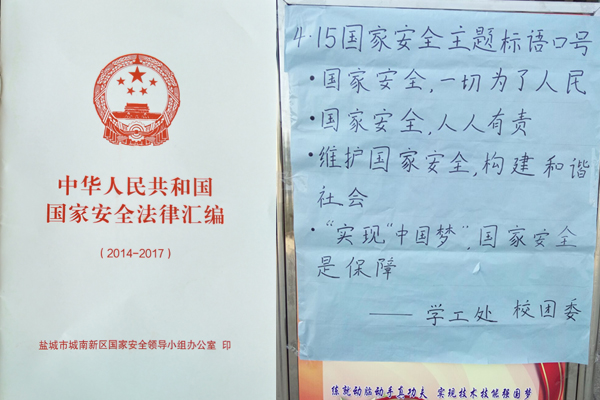 中华人民共和国
国家安全法律汇编
(2014-2017)
盐城市城南新区国家安全领导小组办公室 印
4.15国家安全主题标语口号
·国家安全,一切为了人民
·国家安全,人人有责
·维护国家安全,构建和谐
社会
·“实现“中国梦”,国家安全
是保障
——学工处 校团委
练就动脑动手真功夫 实现技术技能强国梦